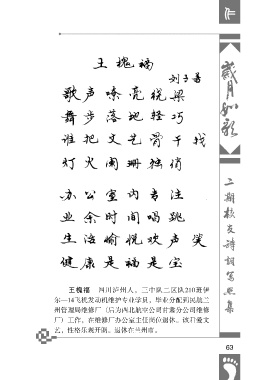 王槐福
刘子善
歌声嘹亮绕梁
舞步落地轻巧
谁把文艺骨干找
灯火阑珊独俏
办公室内专注
业余时间唱跳
生活愉悦欢声笑
健康是福是宝
王槐福 四川泸州人。三中队二区队210班伊
尔—14飞机发动机维护专业学员，毕业分配到民航兰
州管理局维修厂（后为西北航空公司甘肃分公司维修
厂）工作，在维修厂办公室主任岗位退休。该君爱文
艺，性格乐观开朗。退休在兰州市。
岁月如歌
二期校友诗词写照集
63